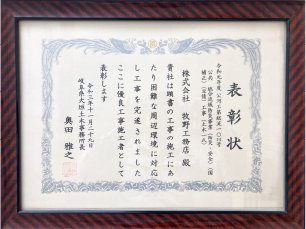 表彰状
株式会社 牧野工務店 殿
貴社は頭書の工事の施工にあ
たり困難な周辺環境に対応
し工事を完遂されました
ここに優良工事施工者として
表彰します
令和三年十一月二十九日
岐阜県大垣土木事務所長
奥田 雅之